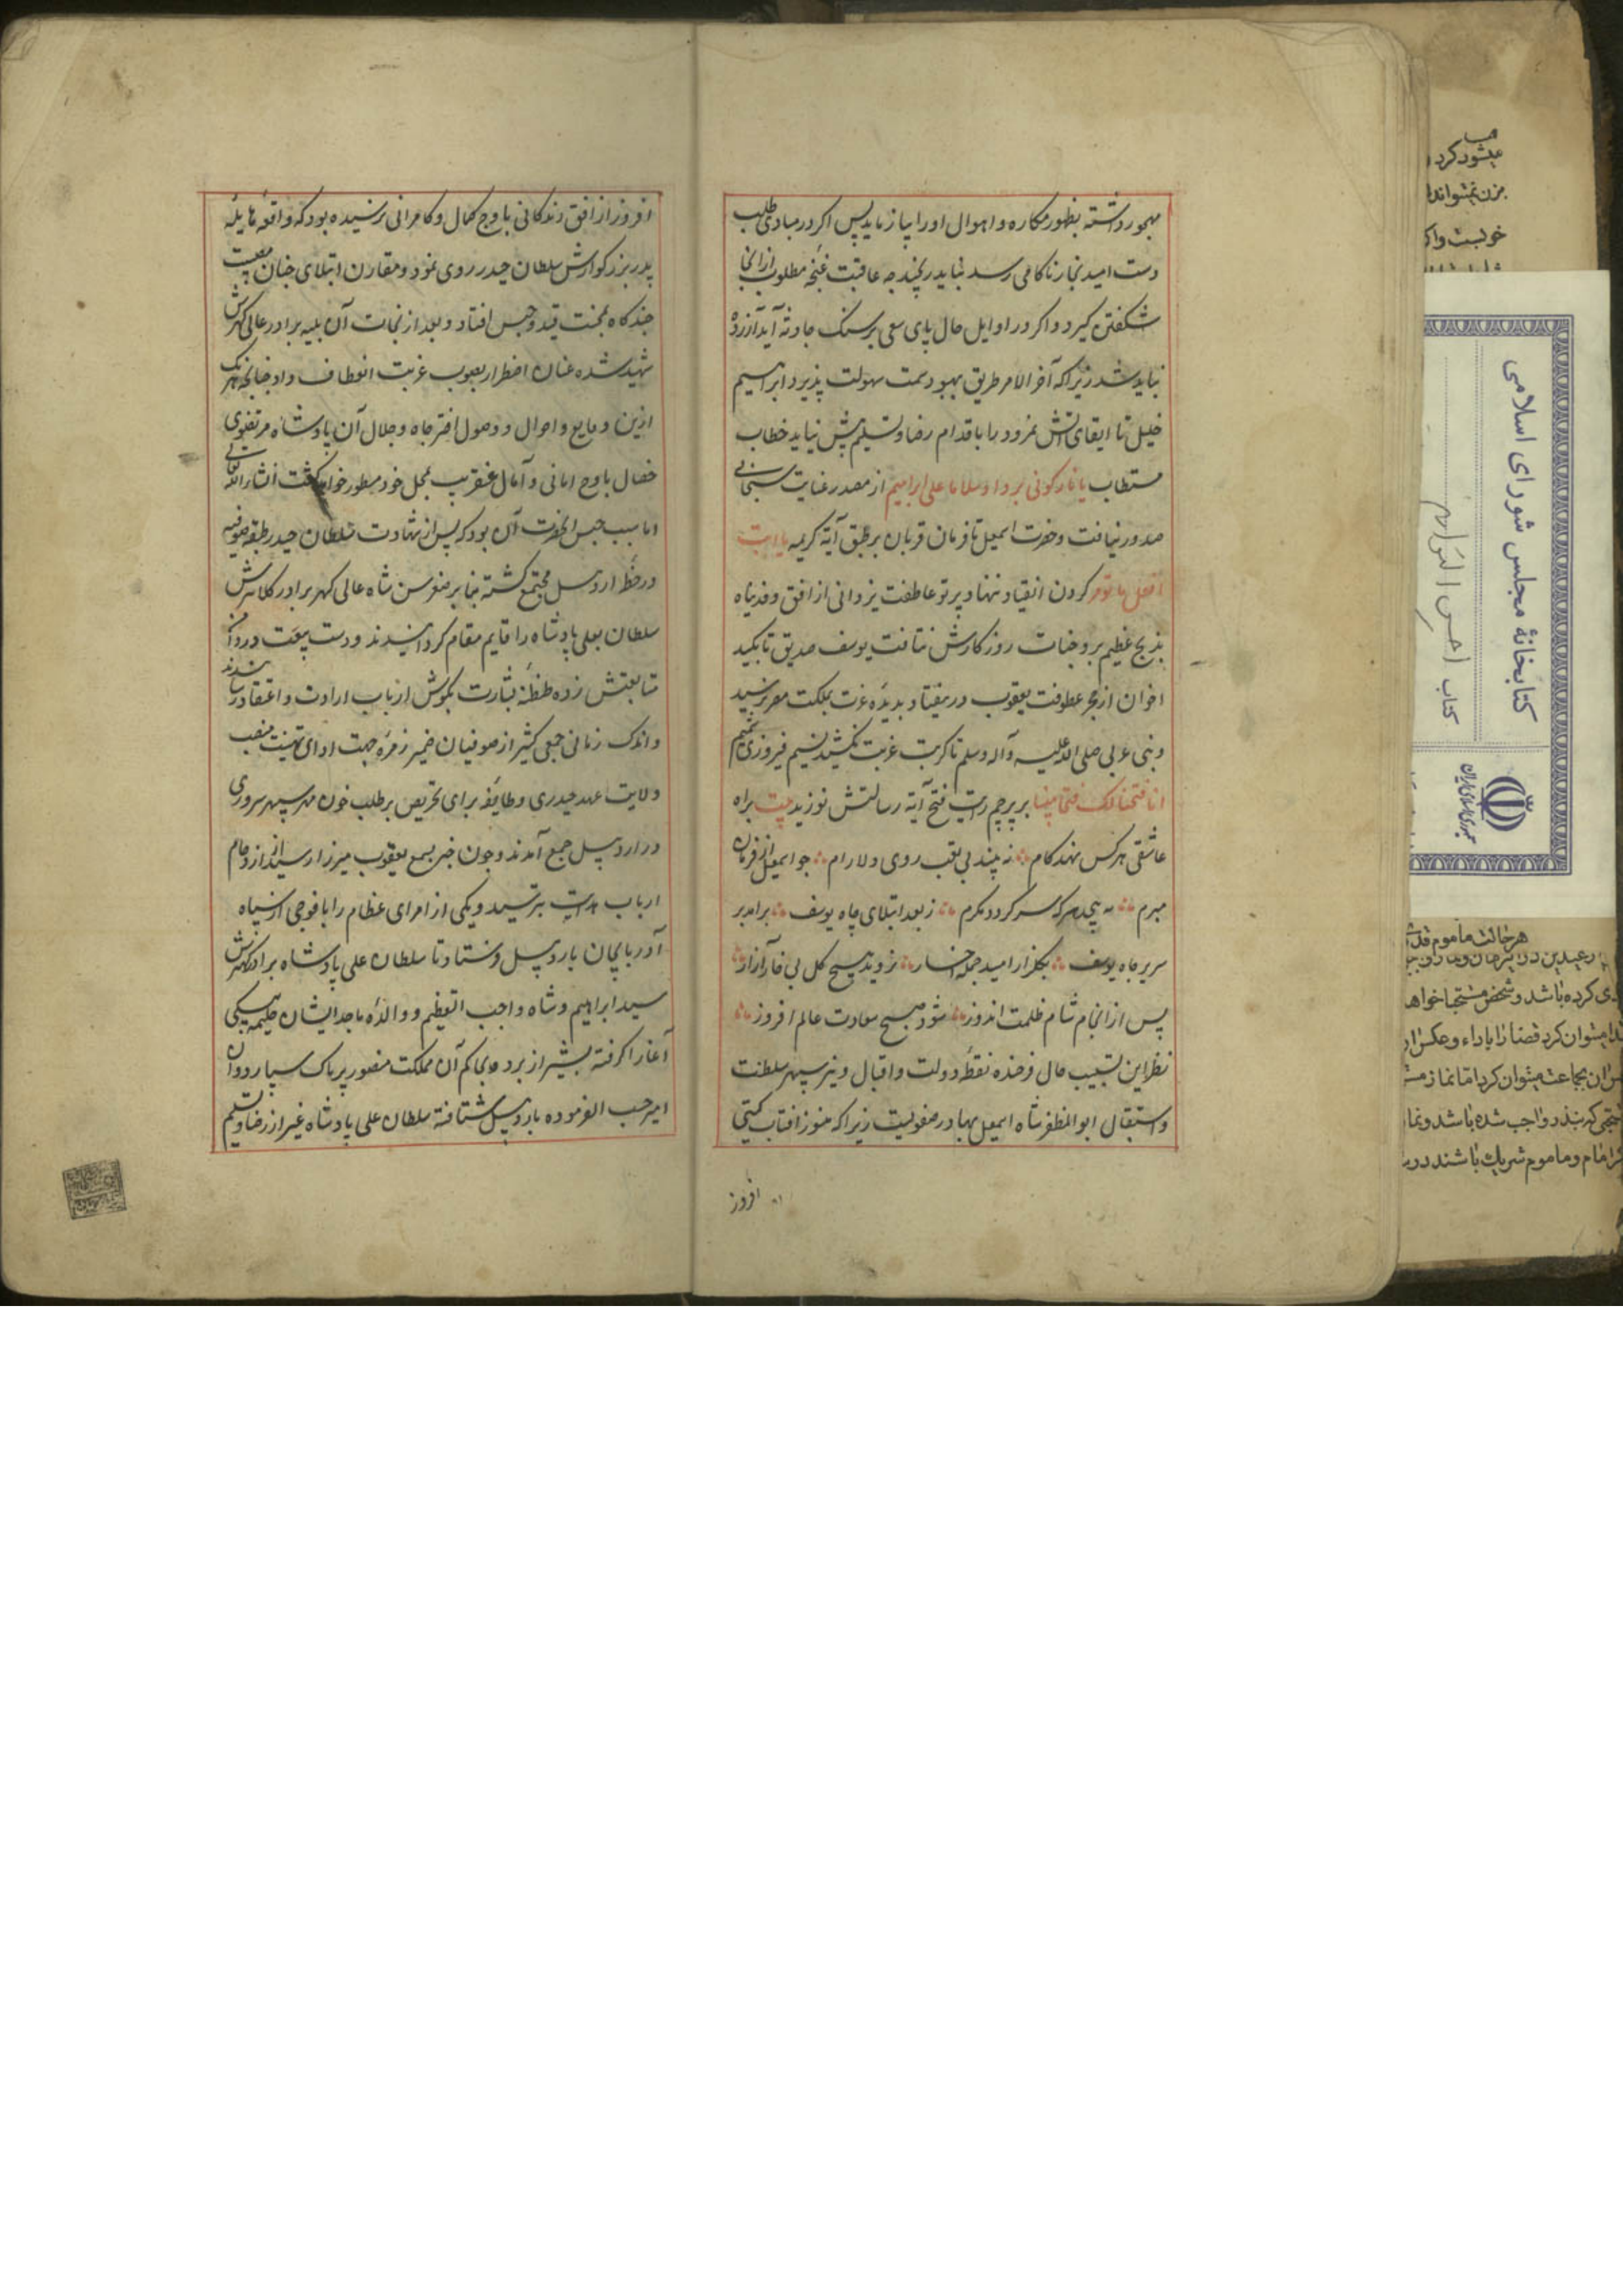 مهجور داشته بظهور مکاره و اهوال او را بیازماید پس اگر در مبادی طلب
دست امید بخار ناکامی رسد نباید رنجید چه عاقبت غنچه مطلوب از انجا
شکفتن گیرد و اگر در اوایل حال پای سعی بر سنک حادثه آید آزرده
نباید شد زیرا که آخر الامر طریق بهبود سمت سهولت پذیرد ابراهیم
خلیل تا ایقای آتش نمرود را باقدام رضا و تسلیم پیش نیاید خطاب
مستطاب یا نار کونی بردا و سلاما علی ابراهیم از مصدر عنایت سبحانی
صدور نیافت و حضرت اسمعیل تا فرمان قربان بر طبق آیة کریمه یا ابت
افعل ما تومر کردن انقیاد ننهاد پرتو عاطفت یزدانی از افق وفدیناه
بذبح عظیم بر وجنات روزکارش نتافت یوسف صدیق تا بکید
اخوان از حجر عطوفت یعقوب در نیفتاد بدیده عزت بملکت مصر نرسید
و نبی عربی صلی الله علیه و آله و سلم تا کربت غربت نکشید نسیم فیروزی شمیم
انا فتحنا لک فتحا مبینا بر پرچم رایت فتح آیة رسالتش نوزید بیت براه
عاشقی هر کس نهد کام نه بیند بی تعب روی دلارام چو اسمعیل از فرمان
مبرم نه پیچد هر که سر کردد مکرم ز بعد ابتلای چاه یوسف برامد بر
سریر جاه یوسف بکلزار امید جمله اخیار نروید هیچ کل بی خار آزار
پس از انجام شام ظلمت اندوز شود صبح سعادت عالم افروز
نظر این تشبیب حال فرخنده نقطه دولت و اقبال و نیر سپهر سلطنت
و استقلال ابو المظفر شاه اسمعیل بهادر صفویست زیرا که هنوز افتاب کیتی
افروز
افروز از افق زندکانی باوج کمال و کامرانی نرسیده بود که واقعه هایله
پدر بزرکوارش سلطان حیدر روی نمود و مقارن ابتلای چنان مصیبت
چندکاه بمحنت قید و حبس افتاد و بعد از نجات آن بلیه برادر عالی کهرش
شهید شده عنان اضطرار بصوب غربت انعطاف داد چنانچه هر یک
ازین وقایع و احوال و وصول اختر جاه و جلال آن پادشاه مرتضوی
خصال باوج امانی و آمال عنقریب بمحل خود مسطور خواهد کشت انشاء الله تعالی
اما سبب حبس انحضرت آن بود که پس از شهادت سلطان حیدر طبقه صوفیه
در خطه اردبیل مجتمع کشته بنابر صغر سن شاه عالی کهر برادر کلانترش
سلطان علی پادشاه را قایم مقام کردانیدند و دست بیعت در دامن
متابعتش زده طنطنه بشارت بکوش ارباب ارادت و اعتقاد رسانیدند
و اندک زمانی جمعی کثیر از صوفیان خیر زمره جهت ادای تهنیت منصب
ولایت عهد حیدری و طایفه برای تحریص بر طلب خون مهر سپهر سروری
در اردبیل جمع آمدند و چون خبر بسمع یعقوب میرزا رسید از ازدحام
ارباب هدایت بترسید و یکی از امرای عظام را با فوجی از سپاه
آذربایجان باردبیل فرستاد تا سلطان علی پادشاه برادر کهترش
سید ابراهیم و شاه واجب التعظیم و والده ماجد ایشان حلیمه بیکی
آغا را کرفته بشیراز برد و بحاکم آن مملکت منصور پرناک سپارد و آن
امیر حسب الفرموده باردبیل شتافته سلطان علی پادشاه غیر از رضا و تسلیم
کتابخانهٔ مجلس شورای اسلامی
کتاب احسن التواریخ
جمهوری اسلامی ایران
میشود کرد
خولیست واک
هر حالت ماموم قد
ی کرده باشد و شخص مستجبا خواهد
میتوان کرد قضا را باداء و عکس ان
ان بجاعت میتوان کرد اما نماز
که بنذر واجب شده باشد و نما
امام و ماموم شریک باشند در